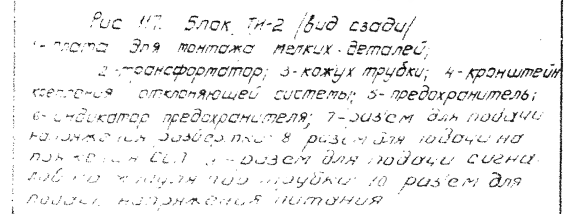 Рис. 117. Блок ТИ-2 /вид сзади/
1- плата для монтажа мелких деталей;
2-трансформатор; 3-кожух трубки; 4-кронштейн
крепления отклоняющей системы; 5-предохранитель;
6-индикатор предохранителя; 7-разъем для подачи
напряжения развертки 8 разем для подачи на
пряжения 9-разем для подачи сигна
лов на трубки 10 раз'ем для
подачи напряжения питания